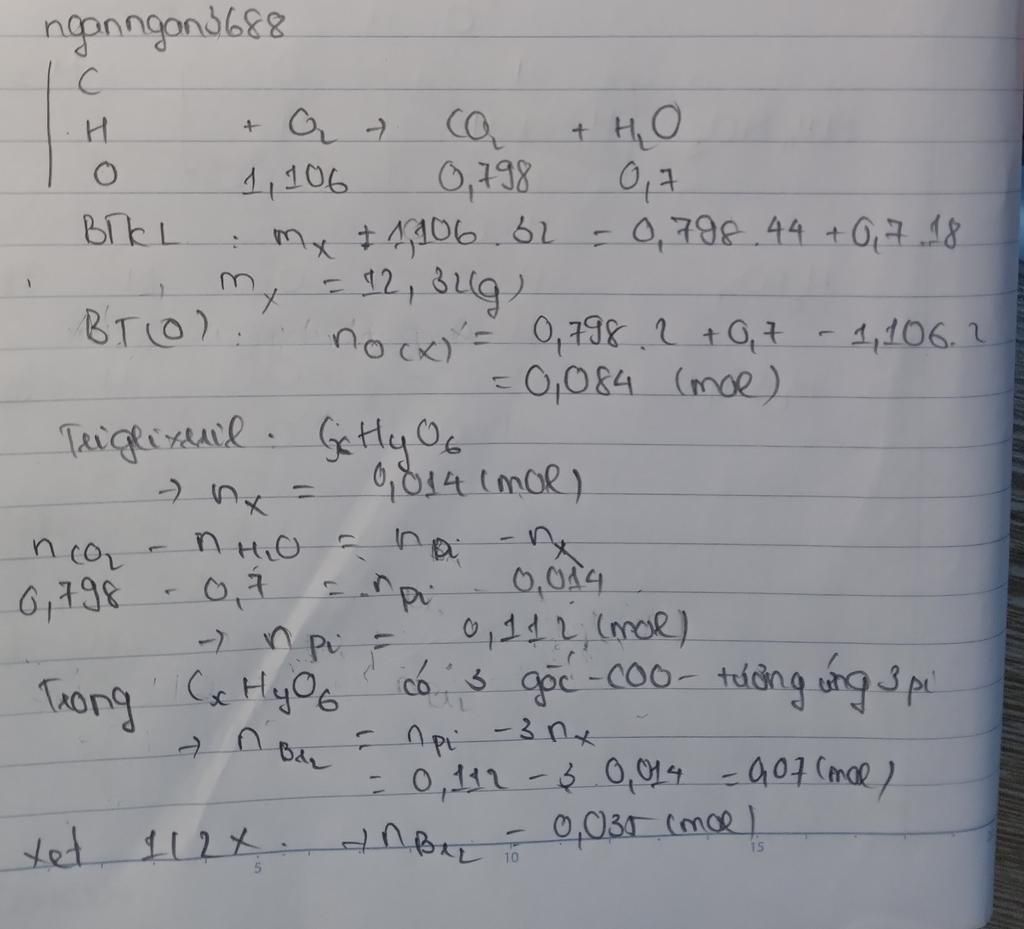 nganngan3688
C
H + O₂ → CO₂ + H₂O
O 1,106 0,798 0,7
BTKL : mₓ + 1,106 . 32 = 0,798 . 44 + 0,7 . 18
mₓ = 12,32(g)
BT(O) : nO(X) = 0,798 . 2 + 0,7 - 1,106 . 2
= 0,084 (mol)
Triglixerit : CxHyO₆
→ nₓ = 0,014 (mol)
nCO₂ - nH₂O = nPi - nₓ
0,798 - 0,7 = nPi - 0,014
→ nPi = 0,112 (mol)
Trong CxHyO₆ có 3 gốc -COO- tương ứng 3 pi
→ nBr₂ = nPi - 3nₓ
= 0,112 - 3 0,014 = 0,07 (mol)
xét 1/2 X. → nBr₂ = 0,035 (mol)
5 10 15